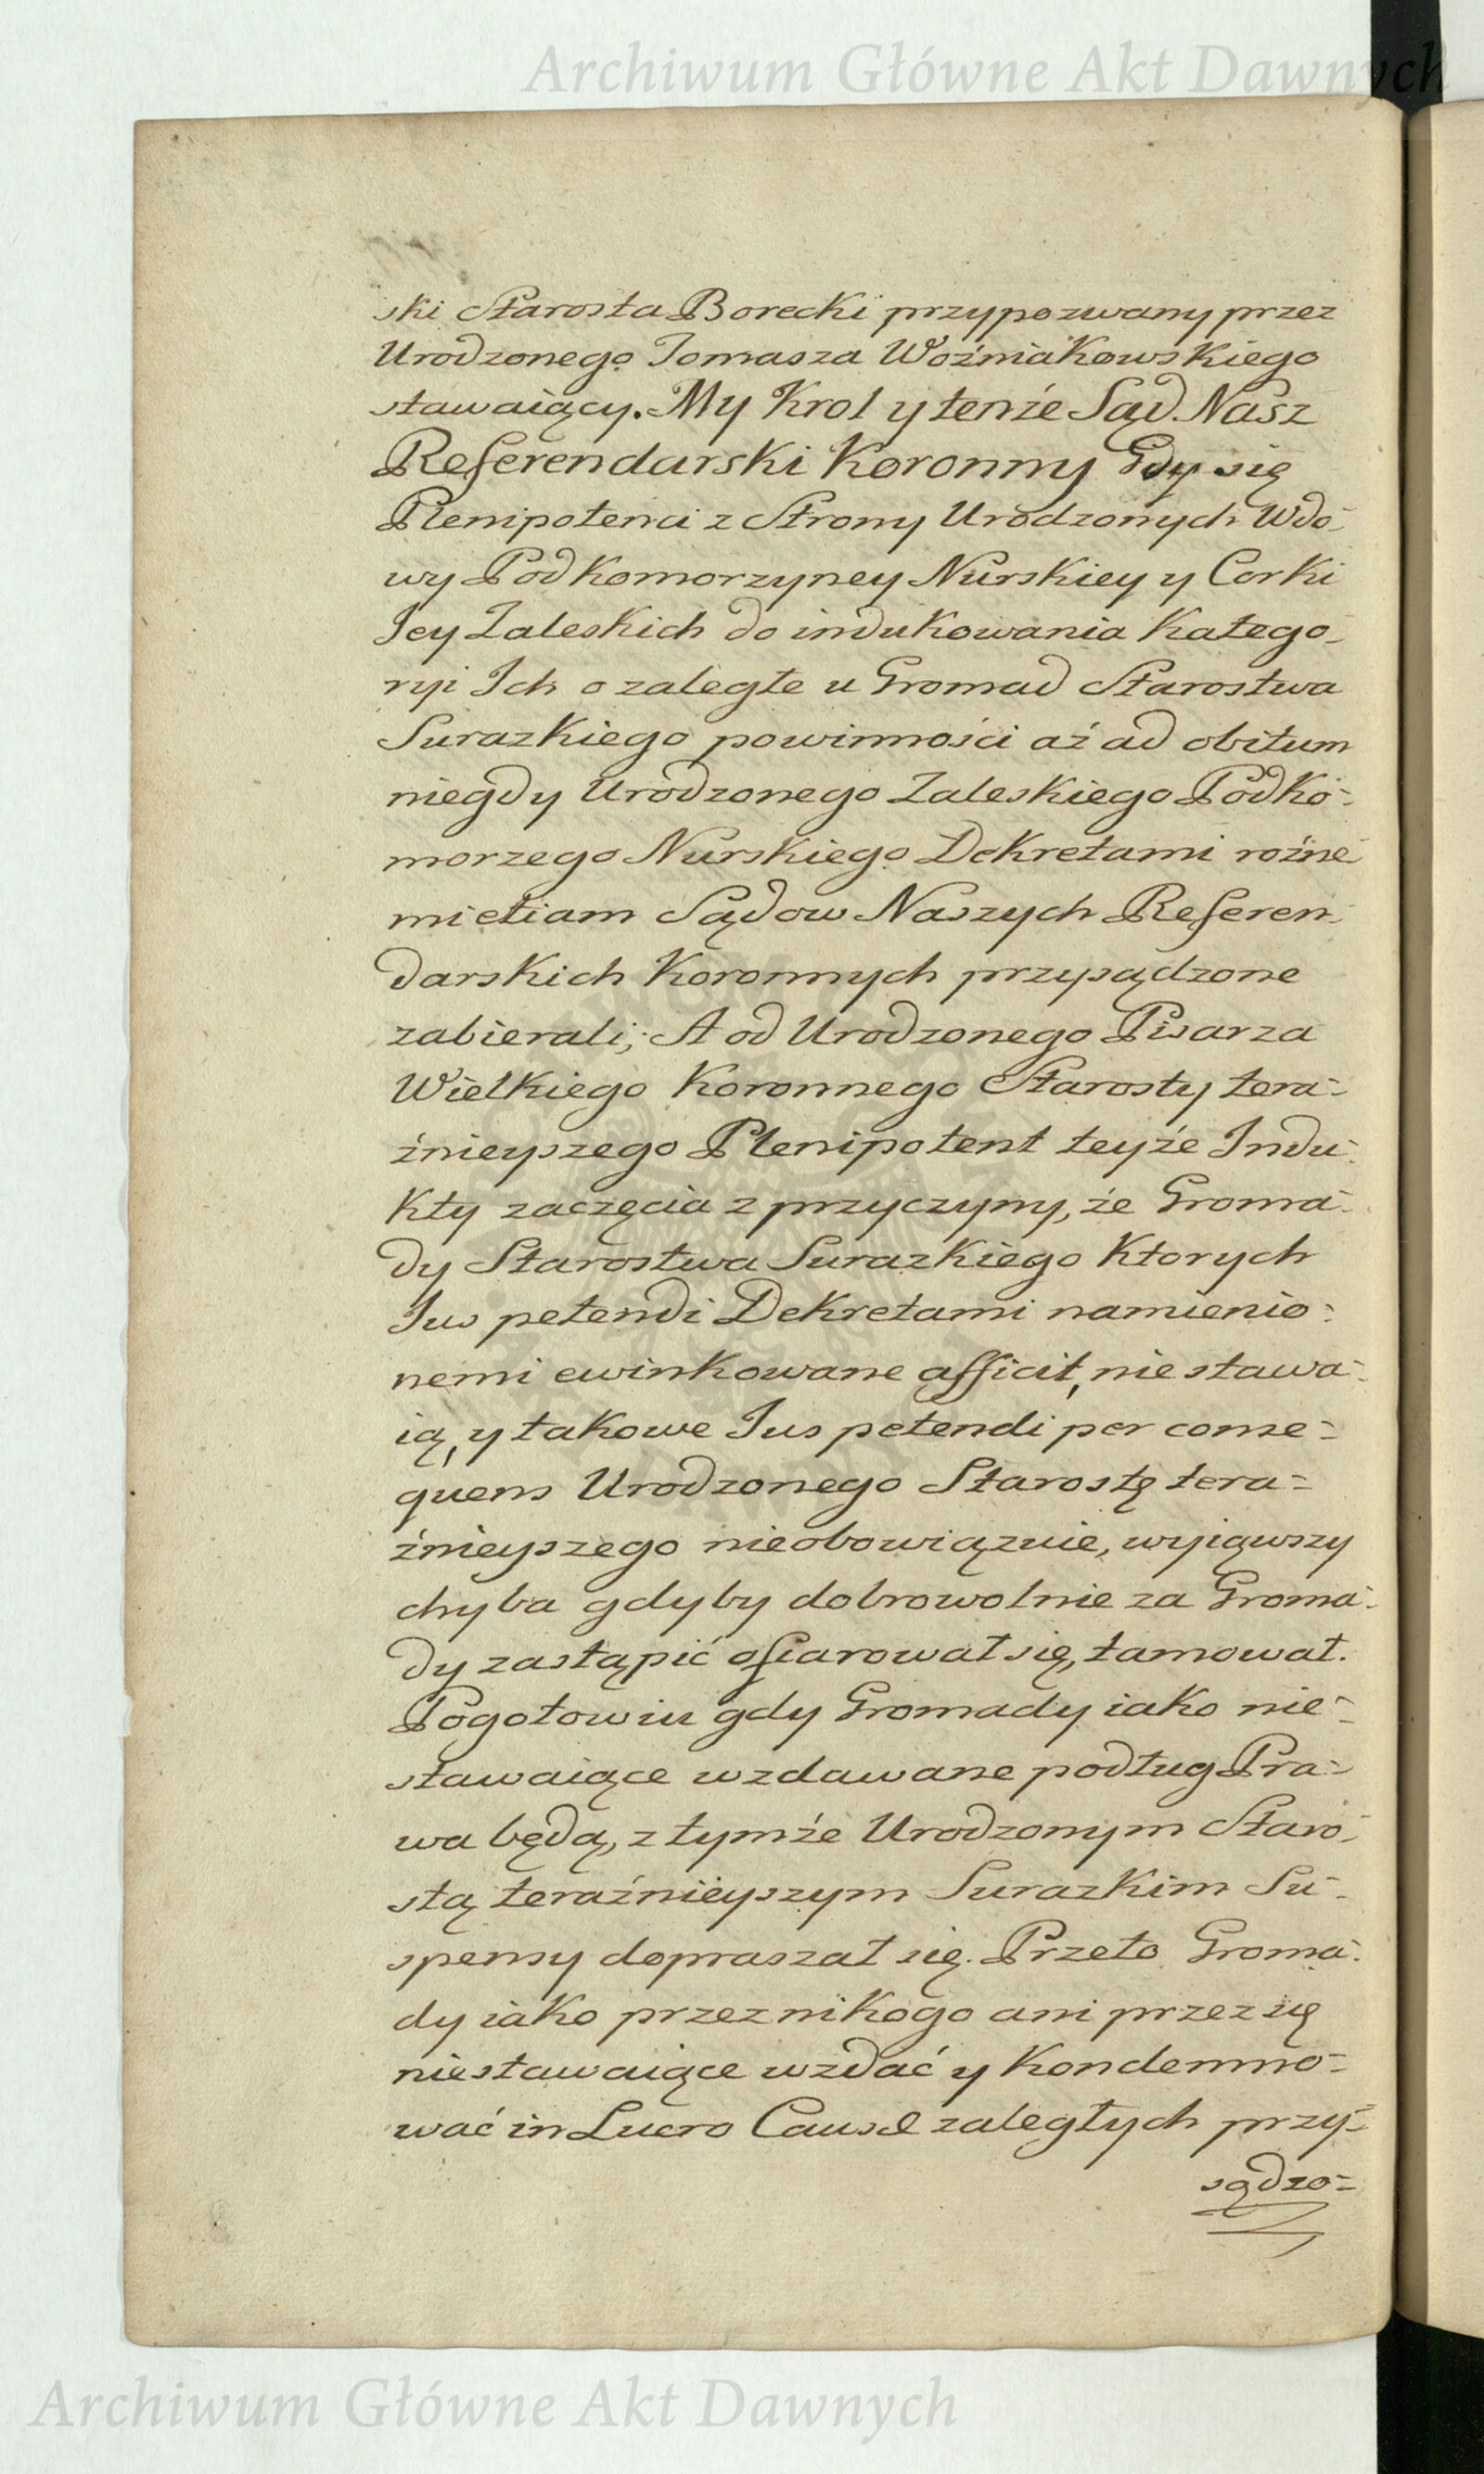 Archiwum Główne Akt Dawnych
ski Starosta Borecki przypozwany przez
Urodzonego Tomasza Woźniakowskiego
stawaiący. My Krol y tenże Sąd Nasz
Referendarski Koronny Gdy się
Plenipotenci z Strony Urodzonych Wdo-
wy Podkomorzyney Nurskiey y Corki
Jey Zaleskich do indukowania Katego-
ryi Ich o zaległe u Gromad Starostwa
Surazkiego powinności aż ad obitum
niegdy Urodzonego Zaleskiego Podko-
morzego Nurskiego Dekretami rożne-
mi etiam Sądow Naszych Referen-
darskich Koronnych przysądzone
zabierali; A od Urodzonego Pisarza
Wielkiego Koronnego Starosty tera-
źnieyszego Plenipotent teyże Indu-
kty zaczęcia z przyczyny, że Groma-
dy Starostwa Surazkiego Ktorych
Jus petendi Dekretami namienio-
nemi ewinkowane afficit, nie stawa-
ią, y takowe Jus petendi per conse-
quens Urodzonego Starostę tera-
źnieyszego nieobowiązuie, wyiąwszy
chyba gdyby dobrowolnie za Groma-
dy zastąpić ofiarował się, tamował.
Pogotowiu gdy Gromady iako nie-
stawaiące wzdawane podług Pra-
wa będą, z tymże Urodzonym Staro-
stą teraźnieyszym Surazkim Su-
spensy dopraszał się. Przeto Groma-
dy iako przez nikogo ani przez się
niestawaiące wzdać y Kondemno-
wać in Lucro Causæ zaległych przy-
sądzo-
Archiwum Główne Akt Dawnych